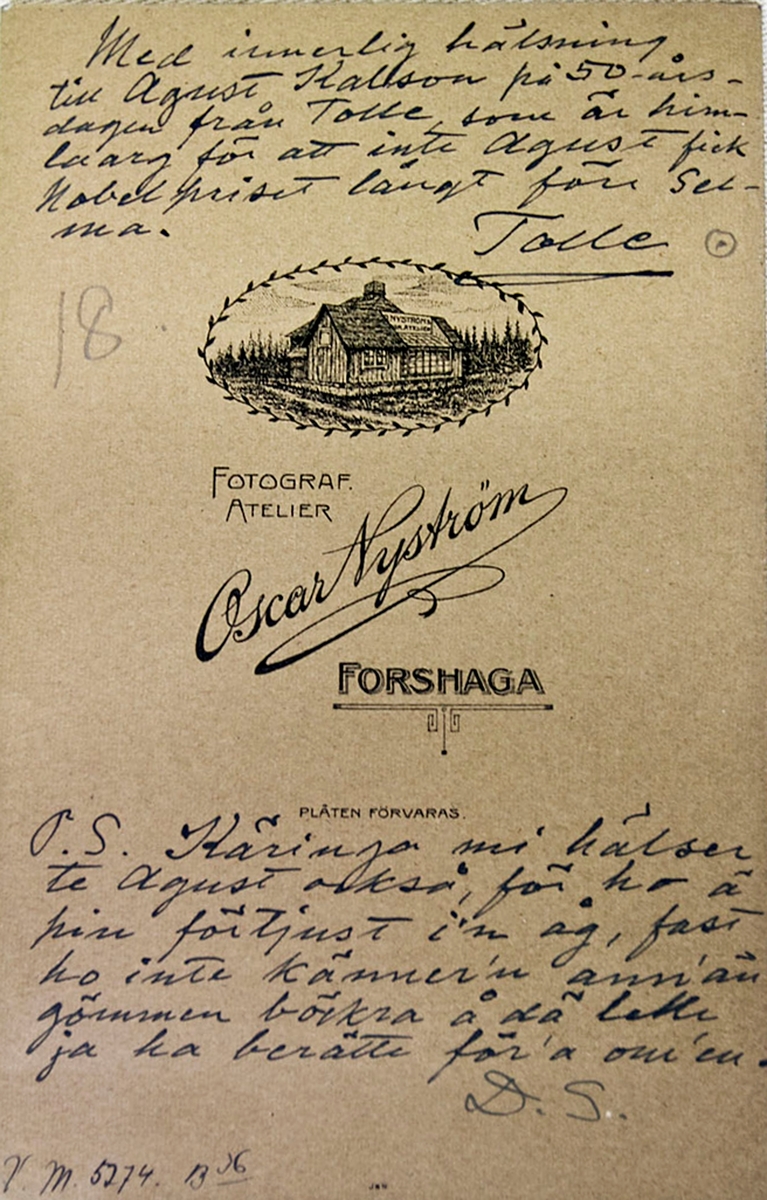 Med innerlig hälsning
till Agust Kallson på 50-års-
dagen från Tolle, som är him-
la arg för att inte Agust fick
Nobelpriset långt före Sel-
ma.
Tolle
18
NYSTRÖMS
ATELIER
FOTOGRAF.
ATELIER
Oscar Nyström
FORSHAGA
PLÅTEN FÖRVARAS.
P.S. Käringa mi hälser
te Agust också, för ho ä
pin förtjust i'n åg, fast
ho inte känner'n ann'än
gömmen böckra å dä lelle
ja ha berätte för'a om'en.
D. S.
V. M. 5274. B 36